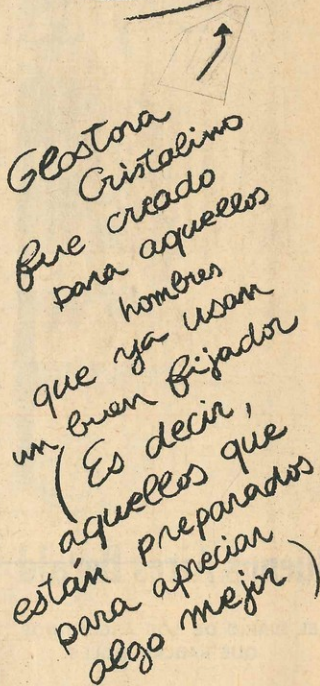 Glostora
Cristalino
fue creado
para aquellos
hombres
que ya usan
un buen fijador
(Es decir,
aquellos que
están preparados
para apreciar
algo mejor)